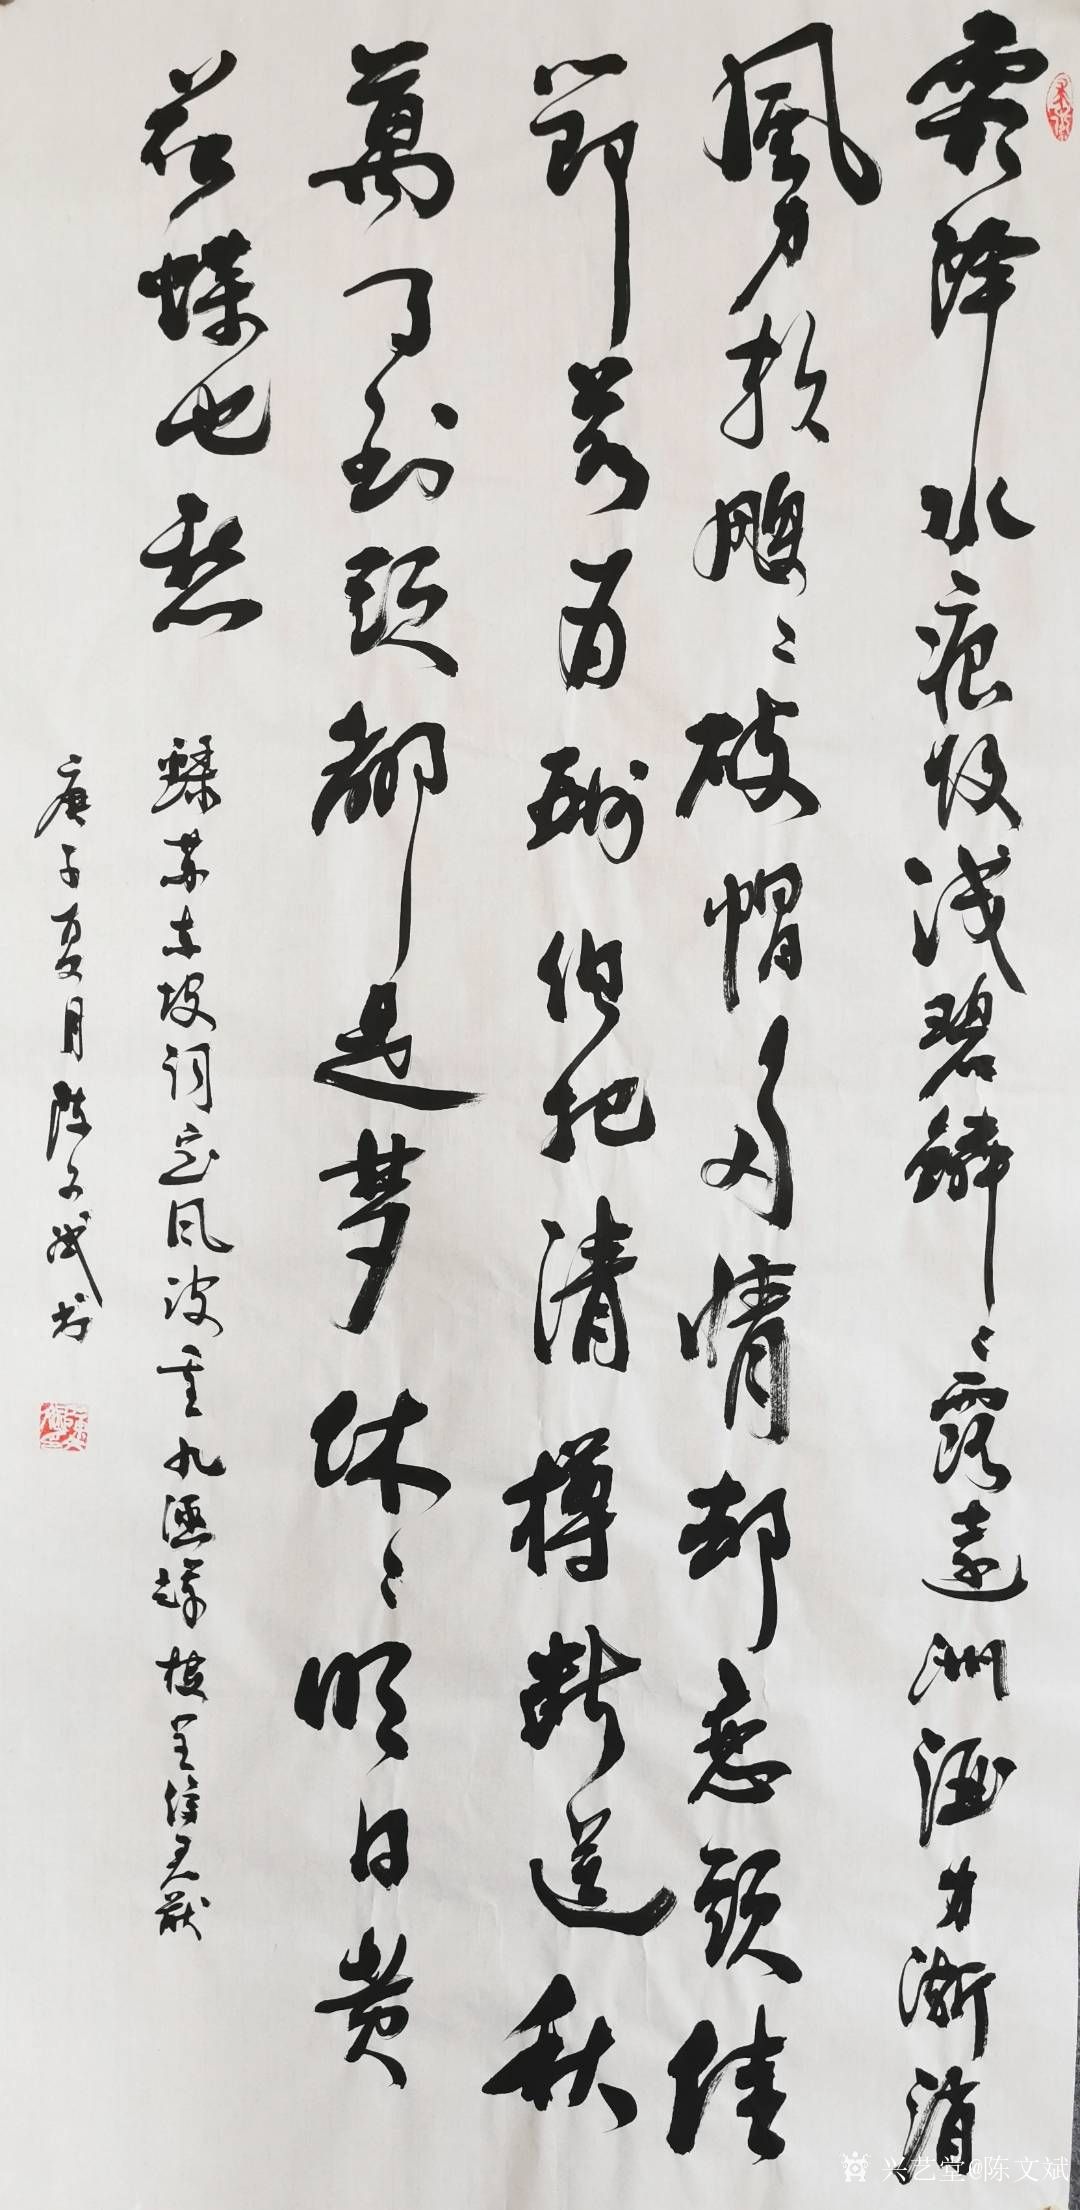 霜降水痕收浅碧鳞〻露遠洲酒力漸消
風力軟飕〻破帽多情却恋頭佳
節若为酬但把清樽断送秋
萬事到頭都是夢休〻明日黄
花蝶也愁
苏东坡词定风波重九涵辉楼呈徐君猷
庚子夏月陈文斌书
兴艺堂@陈文斌